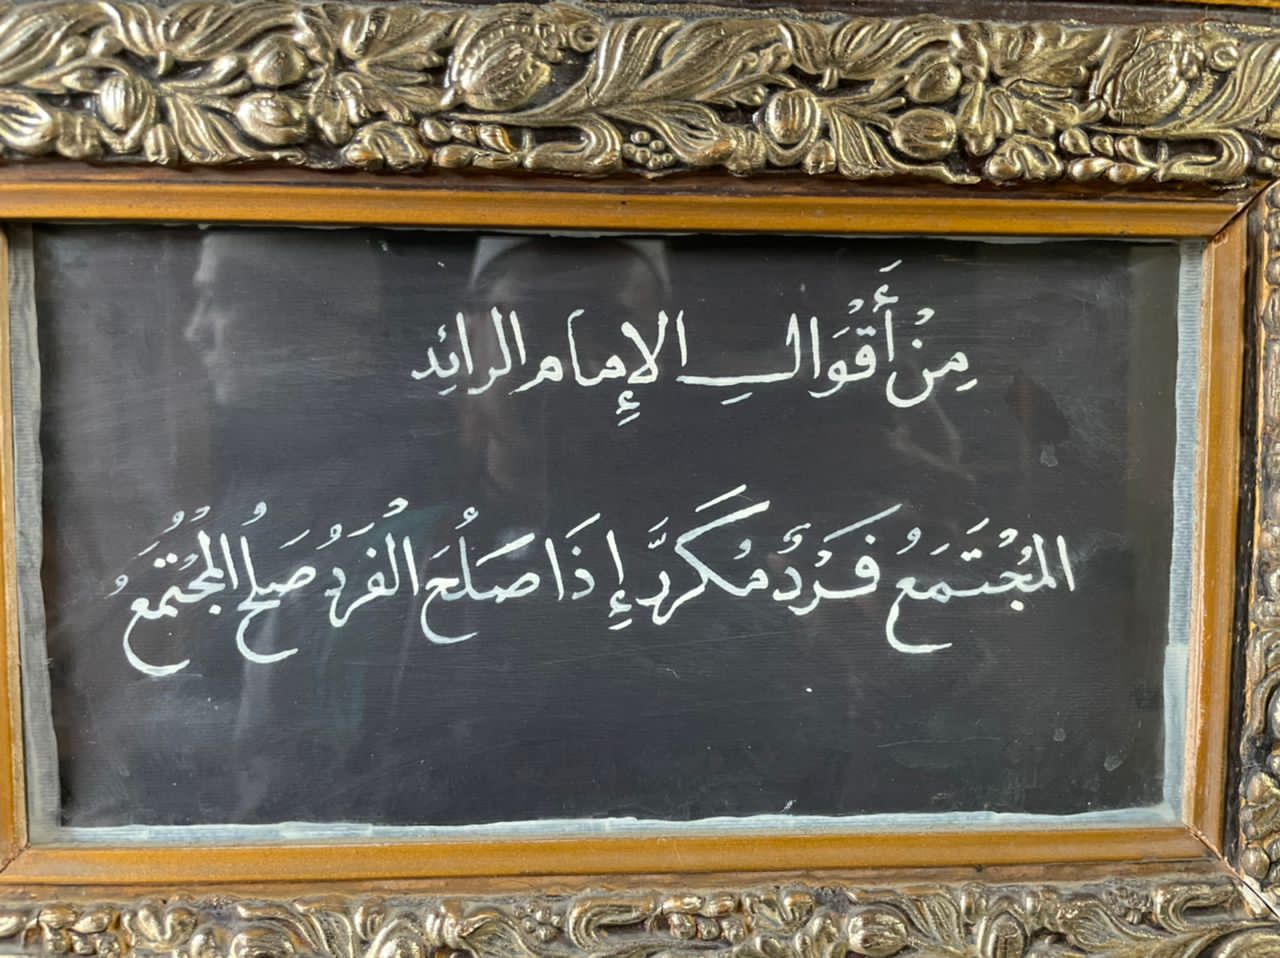 مِنْ أَقْوَالِ الإِمام الرائِد
المجْتَمَعُ فَرْدٌ مُكَرَّر إِذَا صَلُحَ الْفَرْدُ صَلُحَ المجْتَمَعُ